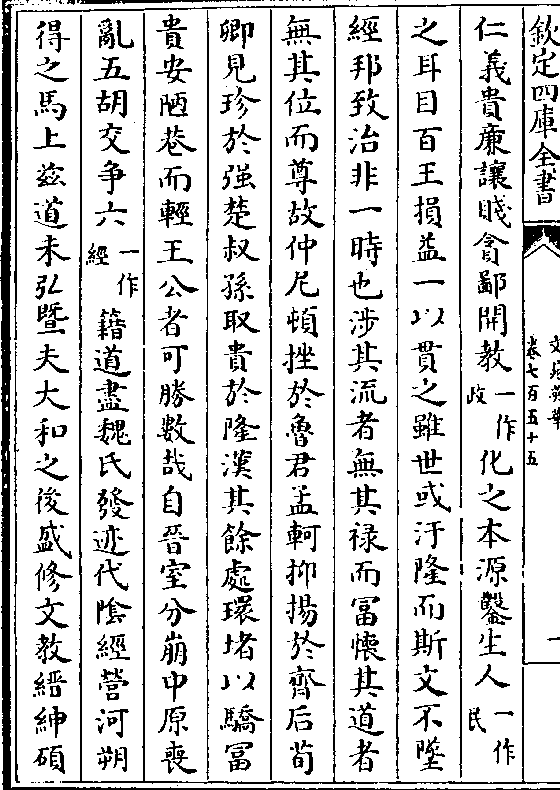 欽定四庫全書
文苑英華
卷七百五十五
一
仁義貴廉讓賤貪鄙開教一作政化之本源鑿生人一作民
之耳目百王損益一以貫之雖世或汙隆而斯文不墜
經邦致治非一時也涉其流者無其祿而富懷其道者
無其位而尊故仲尼頓挫於魯君孟軻抑揚於齊后荀
卿見珍於强楚叔孫取貴於隆漢其餘處環堵以驕富
貴安陋巷而輕王公者可勝數哉自晉室分崩中原喪
亂五胡交争六一作經籍道盡魏氏發迹代陰經營河朔
得之馬上兹道未弘暨夫大和之後盛修文教縉紳碩